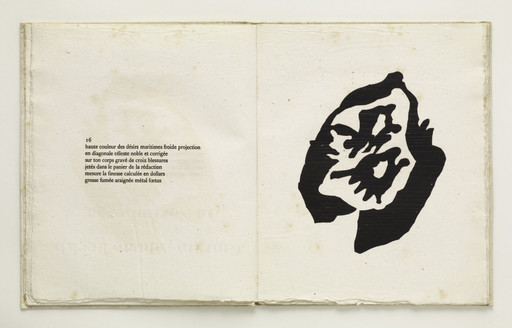 16
haute couleur des désirs maritimes froide projection
en diagonale céleste noble et corrigée
sur ton corps gravé de croix blessures
jetés dans le panier de la rédaction
mesure la finesse calculée en dollars
grosse fumée araignée métal fœtus